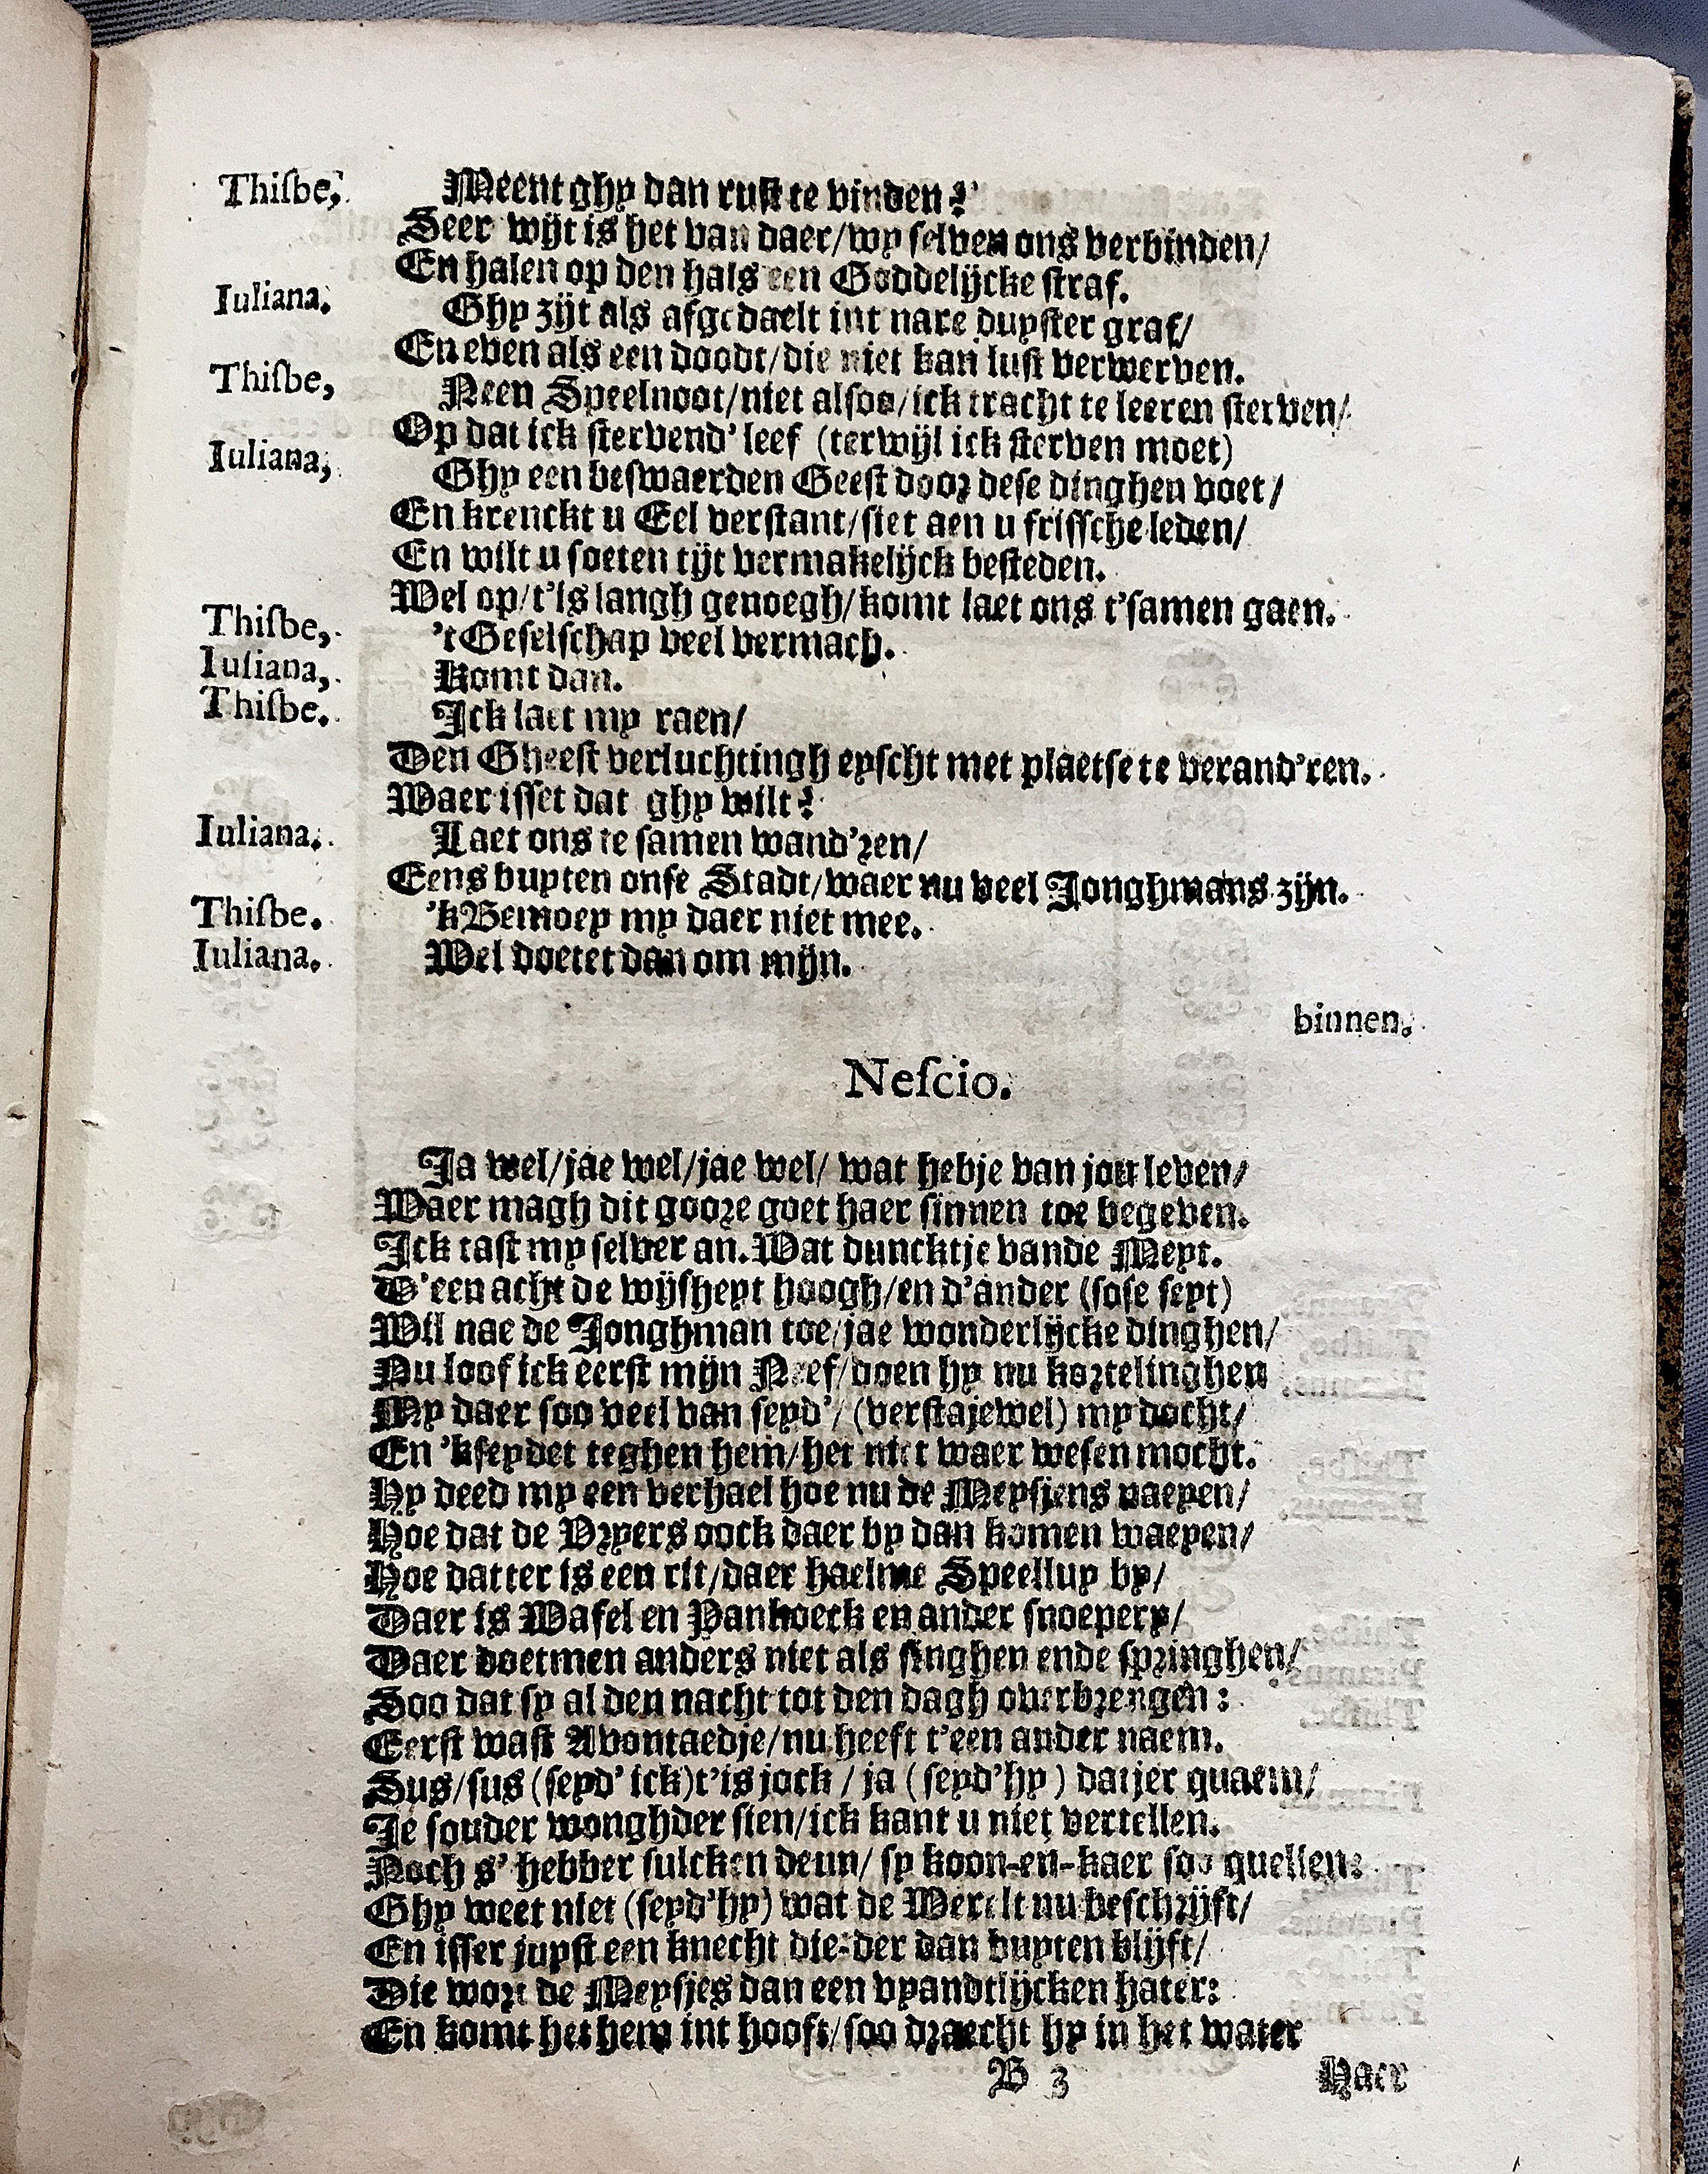 Thiſbe, Meent ghy dan ruſt te vinden?
Seer wijt is het van daer/wy ſelven ons verbinden/
En halen op den hals een Goddelijcke ſtraf.
Iuliana. Ghy zijt als afgedaelt int nare duyſter graf/
En even als een doodt/die niet kan luſt verwerven.
Thiſbe, Neen Speelnoot/niet alſoo/ick tracht te leeren ſterven/
Op dat ick ſtervend' leef (terwijl ick ſterven moet)
Iuliana, Ghy een beſwaerden Geeſt door deſe dinghen voet/
En krenckt u Eel verſtant/ſiet aen u friſſche leden/
En wilt u ſoeten tijt vermakelijck beſteden.
Wel op/t'is langh genoegh/komt laet ons t'ſamen gaen.
Thiſbe, 't Geſelſchap veel vermach.
Iuliana, Komt dan.
Thiſbe. Ick laet my raen/
Den Gheeſt verluchtingh eyſcht met plaetſe te verand'ren.
Waer iſſet dat ghy wilt?
Iuliana. Laet ons te ſamen wand'ren/
Eens buyten onſe Stadt/waer nu veel Jonghmans zijn.
Thiſbe. 'k Bemoey my daer niet mee.
Iuliana. Wel doetet dan om mijn.
binnen.
Neſcio.
Ja wel/jae wel/jae wel/ wat hebje van jou leven/
Waer magh dit goore goet haer ſinnen toe begeven.
Ick taſt my ſelver an. Wat duncktje vande Meyt.
D'een acht de wijſheyt hoogh/en d'ander (ſoſe ſeyt)
Wil nae de Jonghman toe/jae wonderlijcke dinghen/
Nu loof ick eerſt mijn Neef/doen hy nu kortelinghen
My daer ſoo veel van ſeyd'/ (verſtajewel) my docht/
En 'kſeydet teghen hem/het niet waer weſen mocht.
Hy deed my een verhael hoe nu de Meyſjens vaeyen/
Hoe dat de Vryers oock daer by dan komen waeyen/
Hoe datter is een rit/daer haelme Speelluy by/
Daer is Wafel en Pankoeck en ander ſnoepery/
Daer doetmen anders niet als ſinghen ende ſpringhen/
Soo dat ſy al den nacht tot den dagh overbrengen:
Eerſt waſt Avontaedje/nu heeft t'een ander naem.
Sus/ſus (ſeyd' ick) t'is jock / ja (ſeyd'hy) datjer quaem/
Je ſouder wonghder ſien/ick kant u niet vertellen.
Noch s' hebber ſulcken deun/ ſy koon-en-kaer ſoo quellen:
Ghy weet niet (ſeyd'hy) wat de Werelt nu beſchrijft/
En iſſer juyſt een knecht die-der dan buyten blijft/
Die wort de Meyſjes dan een vyandtlijcken hater:
En komt het hem int hooft/ſoo draecht hy in het water
B 3 Haer